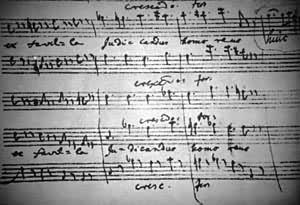 crescendo: for
ex favil=la Judicandus homo reus
huic
crescendo: for:
crescendo: for:
ex favil=la Judicandus homo reus
cresc: for